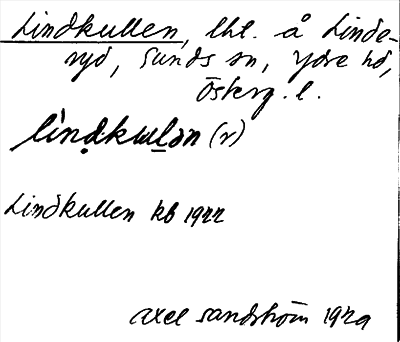 Lindkullen, lht. å Linde-
ryd, Sunds sn, Ydre hd,
Österg. l.
lìn̥dkɯlən (r)
Lindkullen kb 1922
Axel Sandström 1929